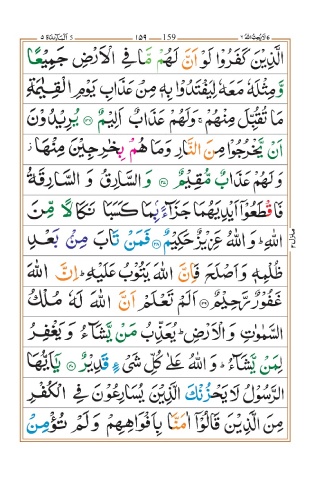 159 ١٥٩
الَّذِيْنَ كَفَرُوْا لَوْ اَنَّ لَهُمْ مَّا فِي الْاَرْضِ جَمِيْعًا
وَّمِثْلَهٗ مَعَهٗ لِيَفْتَدُوْا بِهٖ مِنْ عَذَابِ يَوْمِ الْقِيٰمَةِ
مَا تُقُبِّلَ مِنْهُمْ ۚ وَلَهُمْ عَذَابٌ اَلِيْمٌ ﴿۳۶﴾ يُرِيْدُوْنَ
اَنْ يَّخْرُجُوْا مِنَ النَّارِ وَمَا هُمْ بِخٰرِجِيْنَ مِنْهَا ز
وَلَهُمْ عَذَابٌ مُّقِيْمٌ ﴿۳۷﴾ وَالسَّارِقُ وَ السَّارِقَةُ
فَاقْطَعُوْٓا اَيْدِيَهُمَا جَزَآءًۢ بِمَا كَسَبَا نَكَالًا مِّنَ
اللّٰهِ ؕ وَ اللّٰهُ عَزِيْزٌ حَكِيْمٌ ﴿۳۸﴾ فَمَنْ تَابَ مِنْۢ بَعْدِ
ظُلْمِهٖ وَ اَصْلَحَ فَاِنَّ اللّٰهَ يَتُوْبُ عَلَيْهِ ؕ اِنَّ اللّٰهَ
غَفُوْرٌ رَّحِيْمٌ ﴿۳۹﴾ اَلَمْ تَعْلَمْ اَنَّ اللّٰهَ لَهٗ مُلْكُ
السَّمٰوٰتِ وَ الْاَرْضِ ؕ يُعَذِّبُ مَنْ يَّشَآءُ وَ يَغْفِرُ
لِمَنْ يَّشَآءُ ؕ وَ اللّٰهُ عَلٰى كُلِّ شَيْءٍ قَدِيْرٌ ﴿۴۰﴾ يٰٓاَيُّهَا
الرَّسُوْلُ لَا يَحْزُنْكَ الَّذِيْنَ يُسَارِعُوْنَ فِي الْكُفْرِ
مِنَ الَّذِيْنَ قَالُوْٓا اٰمَنَّا بِاَفْوَاهِهِمْ وَ لَمْ تُؤْمِنْ